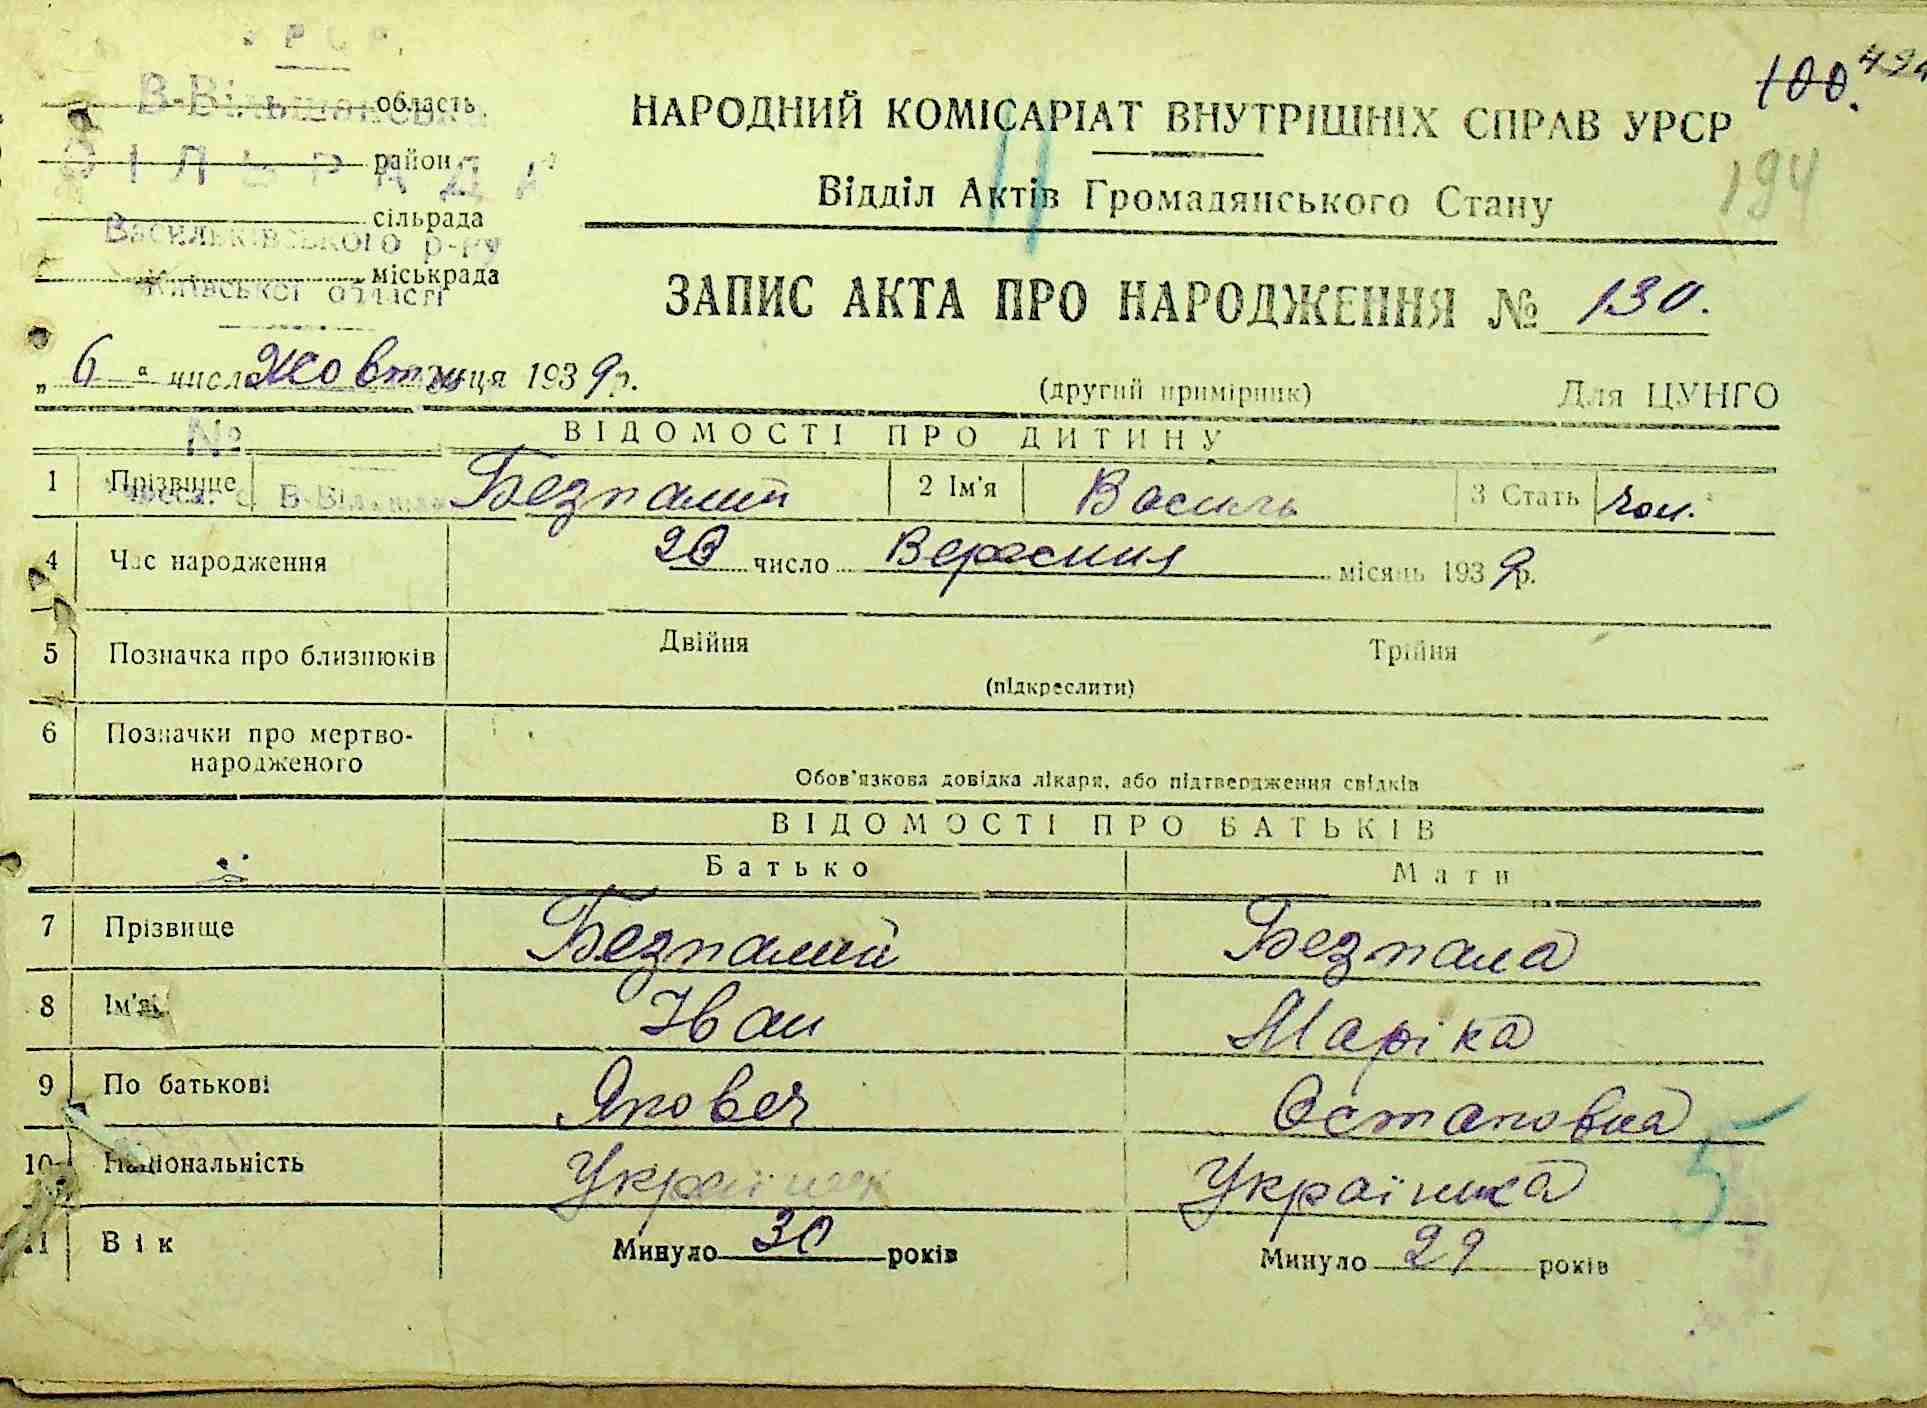 УРСР
В-Вільшанська
область
СІЛЬРАДА
район
сільрада
Васильківського р-ну
міськрада
Київської області
100.
194
НАРОДНИЙ КОМІСАРІАТ ВНУТРІШНІХ СПРАВ УРСР
Відділ Актів Громадянського Стану
ЗАПИС АКТА ПРО НАРОДЖЕННЯ № 130.
„ 6 " числа Жовтня місяця 1939 р.
(другий примірник) Для ЦУНГО
№
ВІДОМОСТІ ПРО ДИТИНУ
1 Прізвище Безпалий 2 Ім'я Василь 3 Стать чол.
4 Час народження 23 число Вересния місяць 1939 р.
5 Позначка про близнюків Двійня Трійня
(підкреслити)
6 Позначки про мертво-
народженого
Обов'язкова довідка лікаря, або підтвердження свідків
ВІДОМОСТІ ПРО БАТЬКІВ
Батько Мати
7 Прізвище Безпалий Безпала
8 Ім'я Іван Маріка
9 По батькові Яковеч Остаповна
10 Національність Українек Українка
5
11 Вік Минуло 30 років Минуло 29 років